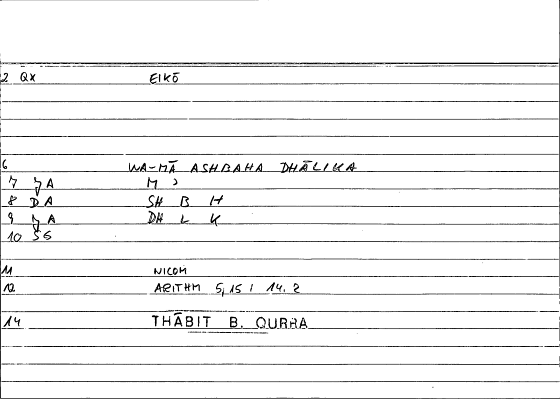 2 QX EIKŌ
6 WA-MĀ ASHBAHA DHĀLIKA
7 JA M ʾ
8 DA SH B H
9 JA DH L K
10 SS
11 NICOM
12 ARITHM 5,15 ; 14.2
14 THĀBIT B. QURRA